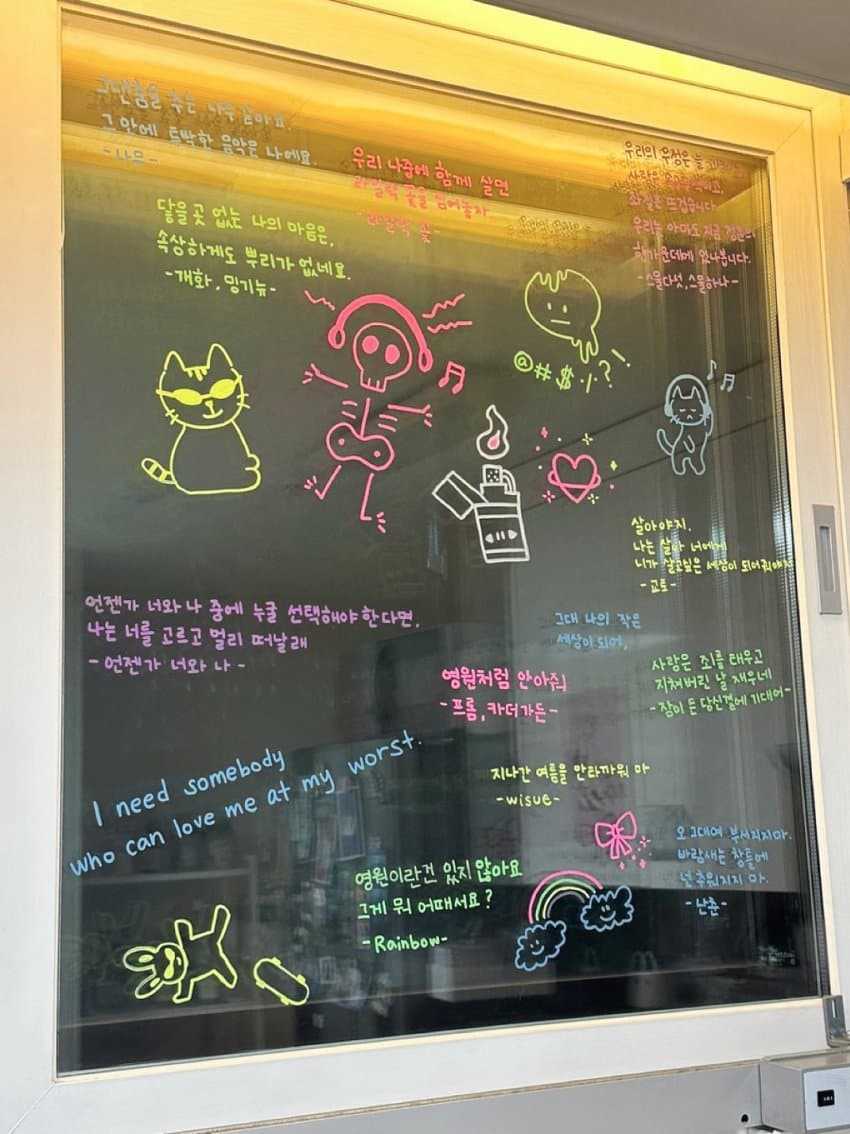 그댄 춤을 추는 나무 같아요.
그 안에 투박한 음악은 나예요.
-나무-
우리 나중에 함께 살면
라일락 꽃을 심어놓자
-라일락 꽃-
우리의 우정은 늘
사랑은
와 같은 뜨겁습니다.
우리는 아마도 지금 청춘의
한가운데에 있나봅니다.
-스물다섯, 스물하나-
닿을 곳 없는 나의 마음은,
속상하게도 뿌리가 없네요.
-개화, 밍기뉴-
@#$%?!
살아야지.
나는 살아 너에게
니가 살고싶은 세상이 되어줘야지
-교토-
언젠가 너와 나 중에 누굴 선택해야 한다면.
나는 너를 고르고 멀리 떠날래
-언젠가 너와 나-
그대 나의 작은
세상이 되어,
영원처럼 안아줘
-프롬, 카더가든-
사랑은 죄를 태우고
지쳐버린 날 재우네
-잠이 든 당신 곁에 기대어-
I need somebody
who can love me at my worst.
지나간 여름을 안타까워 마
-wisue-
영원이란건 있지 않아요
그게 뭐 어때서요?
-Rainbow-
오 그대여 부서지지마.
바람새는 창틀에
넌 추워지지 마.
-난춘-